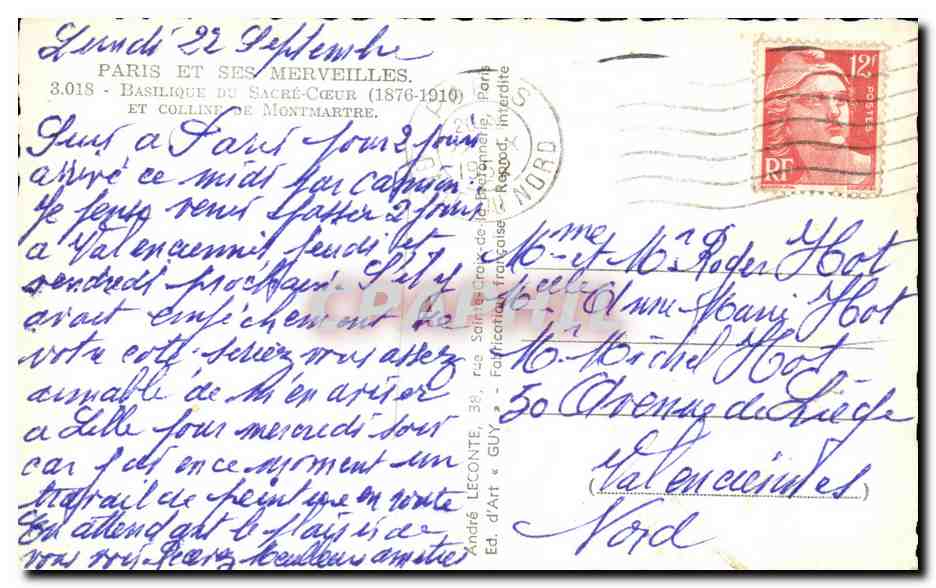 Lundi 22 Septembre
PARIS ET SES MERVEILLES.
3.018 - BASILIQUE DU SACRÉ-CŒUR (1876-1910)
ET COLLINE DE MONTMARTRE.
Suis a Paris pour 2 jours
arrivé ce midi par camion.
Je pense venir passer 2 jours
a Valenciennes jeudi et
vendredi prochain. S'il y
avait empêchement de
votre coté seriez vous assez
aimable de m'en aviser
a Lille pour mercredi soir
car j'ai en ce moment un
travail de peinture en route
En attendant le plaisir de
vous voir. Recevez meilleurs amitiés
André LECONTE, 38, rue Sainte-Croix-de-la-Bretonnerie, Paris
Ed. d'Art « GUY » - Fabrication française - Reprod. interdite
PARIS
NORD
12F
POSTES
RF
Mme et Mr Roger Hot
Melle Anne Marie Hot
Mr Michel Hot
50 Avenue de Liège
(Valenciennes)
Nord
CPAPHIL